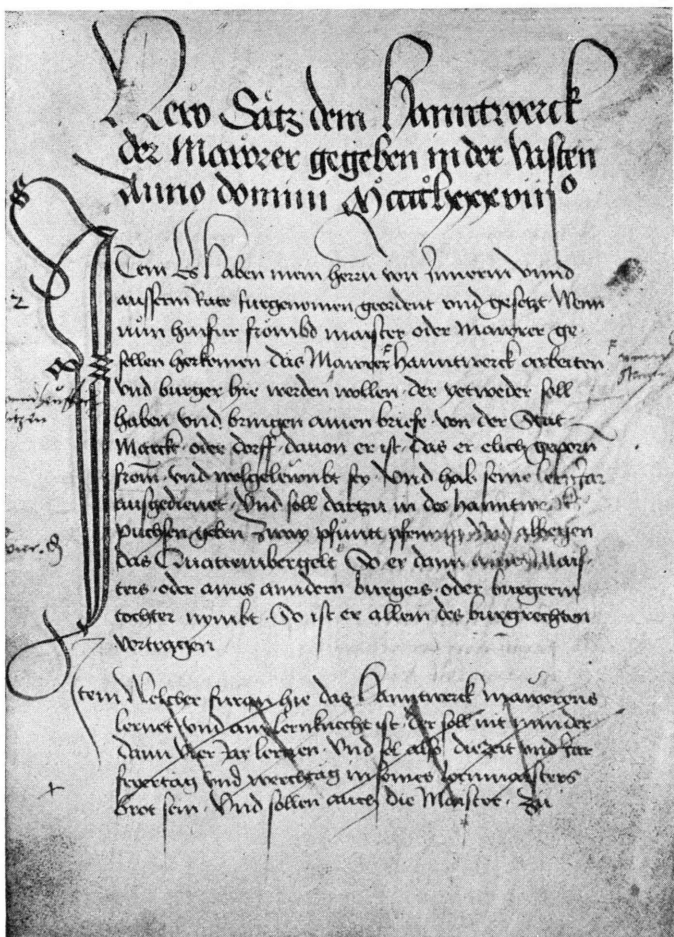 New Sätz dem Hanntwerck
der Mawrer gegeben in der Vasten
Anno domini Mºccccºlxxxviijº
Item Es haben mein herrn von Innerm vnnd
aussern Rate furgenomen geordent vnd gesetzt Wenn
nun hinfur frömbd maister oder Mawrer ge-
sellen herkomen das Mawrer hanntwerck arbeiten
vnd burger hie werden wollen · der yetweder soll
haben vnd bringen ainen briefe von der Stat
Marckt · oder dorff · dauon er ist · das er elich geporn
from · vnd wolgelewmbt sey · Vnd hab seine lernjar
aussgedienet · Vnd soll dartzu in des hanntwercks
püchsen geben Zway pfunt pfenning Vnd albegen
das Quattembergelt So er dann aines Mais-
ters · oder aines anndern burgers · oder burgerin
tochter nymbt · So ist er allein des burgrechten
vertragen
Item Welcher furan hie das Hanntwerck mawrens
lernet vnd ain lernknecht ist · der soll nit minder
dann vier Jar lernen · Vnd all die zeit vnd Jar
feyertäg vnd werchtäg in seines lernmaisters
brot sein · Vnd sollen auch die Maister · Zu